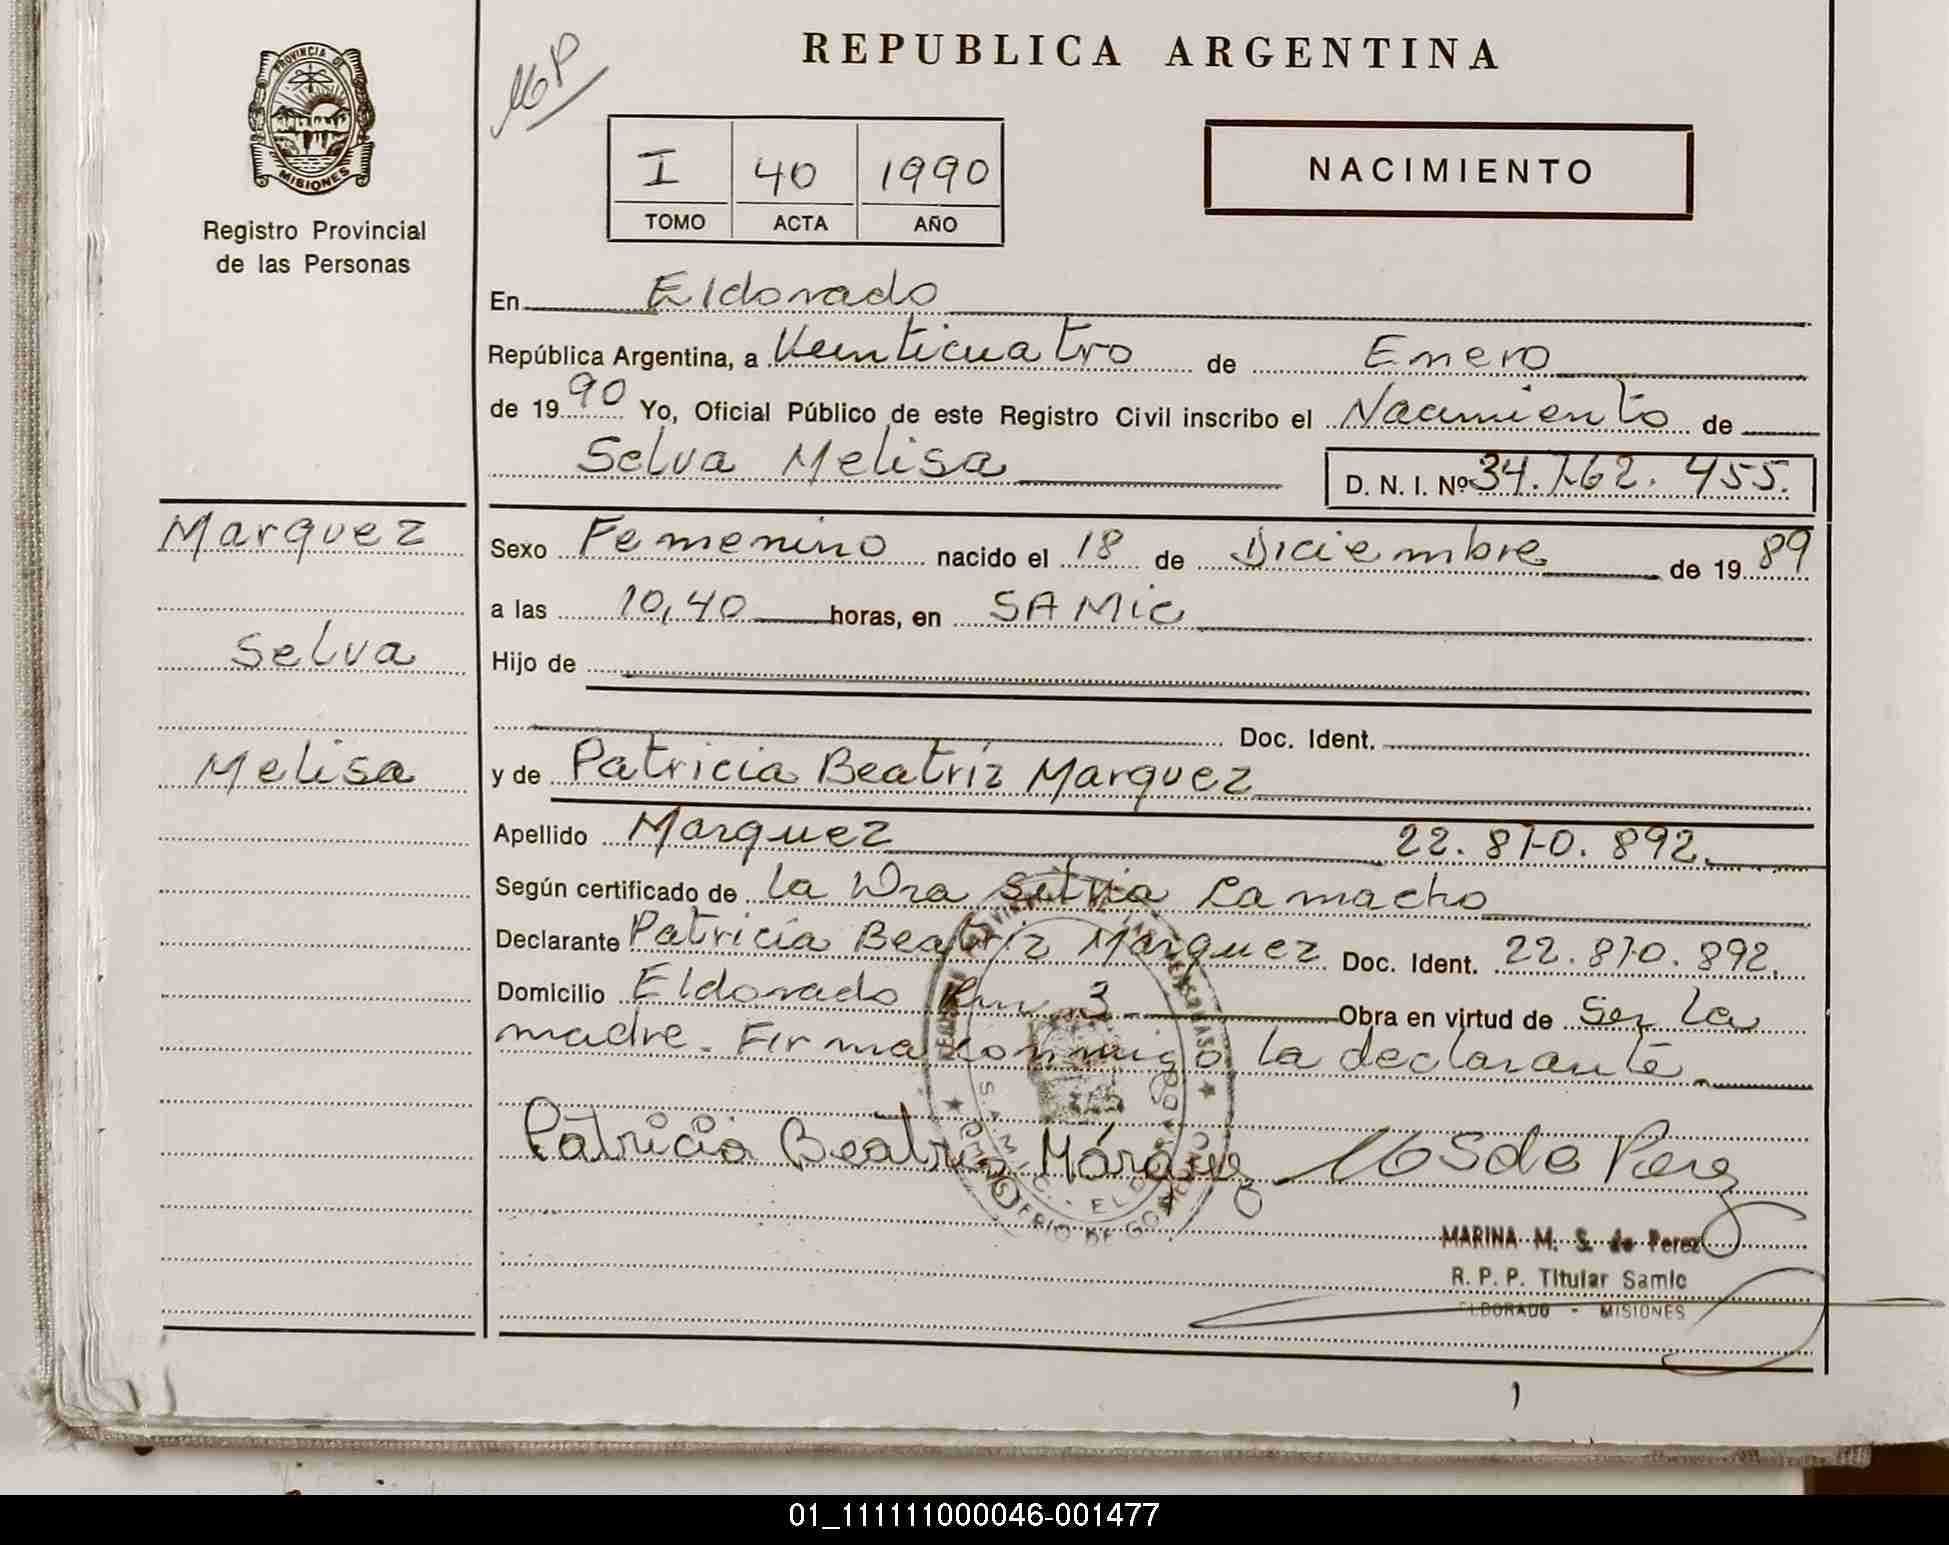 REPUBLICA ARGENTINA
PROVINCIA DE
MISIONES
Registro Provincial
de las Personas
I 40 1990
TOMO ACTA AÑO
NACIMIENTO
En Eldorado
República Argentina, a Veinticuatro de Enero
de 1990 Yo, Oficial Público de este Registro Civil inscribo el Nacimiento de
Selva Melisa D. N. I. Nº 34.762.455.
Marquez
Selva
Melisa
Sexo Femenino nacido el 18 de Diciembre de 1989
a las 10,40 horas, en SAMic
Hijo de
Doc. Ident.
y de Patricia Beatríz Marquez
Apellido Marquez 22.870.892.
Según certificado de la Dra Silvia Camacho
Declarante Patricia Beatriz Marquez Doc. Ident. 22.870.892.
Domicilio Eldorado Km 3 Obra en virtud de Ser la
madre. Firma conmigo la declarante
Patricia Beatriz Márquez MSde Perez
MARINA M. S. de Perez
R. P. P. Titular Samic
ELDORADO - MISIONES
01_111111000046-001477